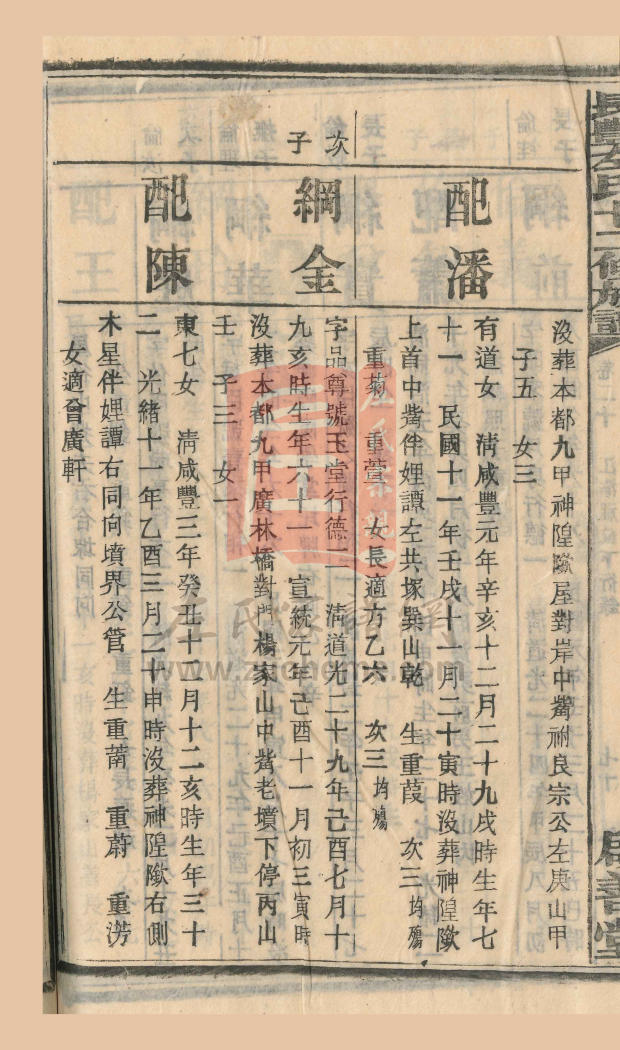 長豐左氏十二修族譜
居善堂
沒葬本都九甲神隍歘屋對岸中嘴祔良宗公左庚山甲
子五 女三
配潘
有道女 淸咸豐元年辛亥十二月二十九戌時生年七
十一 民國十一年壬戌十一月二十寅時沒葬神隍歘
上首中嘴伴娌譚左共塚巽山乾 生重葭 次三均殤
重菊 重萱 女長適方乙六 次三均殤
次子
綱金
字品尊號玉堂行德二 淸道光二十九年己酉七月十
九亥時生年六十一 宣統元年己酉十一月初三寅時
沒葬本都九甲廣林橋對門楊家山中嘴老墳下停丙山
壬 子三 女一
配陳
東七女 淸咸豐三年癸丑十二月十二亥時生年三十
二 光緒十一年乙酉三月二十申時沒葬神隍歘右側
木星伴娌譚右同向墳界公管 生重蘭 重蔚 重淓
女適會廣軒
左氏家譜網
www.zuohome.com